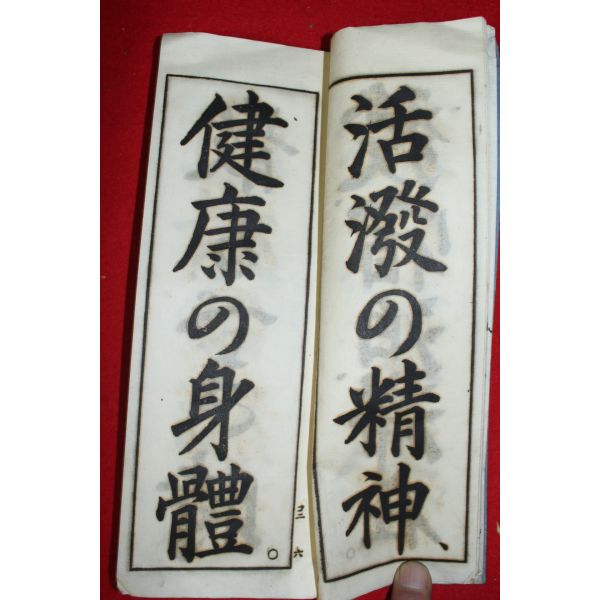 活潑の精神、
健康の身體。
コ三 六